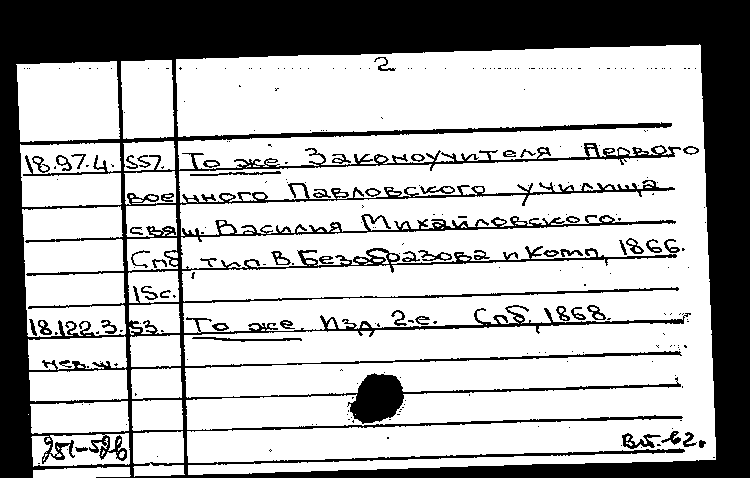 2
18.97.4. 557. То же. Законоучителя Первого
военного Павловского училища
свящ. Василия Михайловского.
Спб, тип. В. Безобразова и комп, 1866.
15с.
18.122.3. 53. То же. Изд. 2-е. Спб, 1868.
нев.ш.